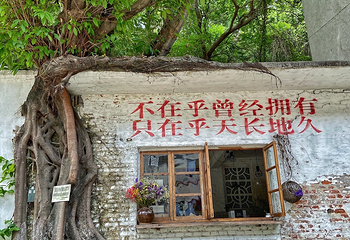 不在乎曾经拥有
只在乎天长地久